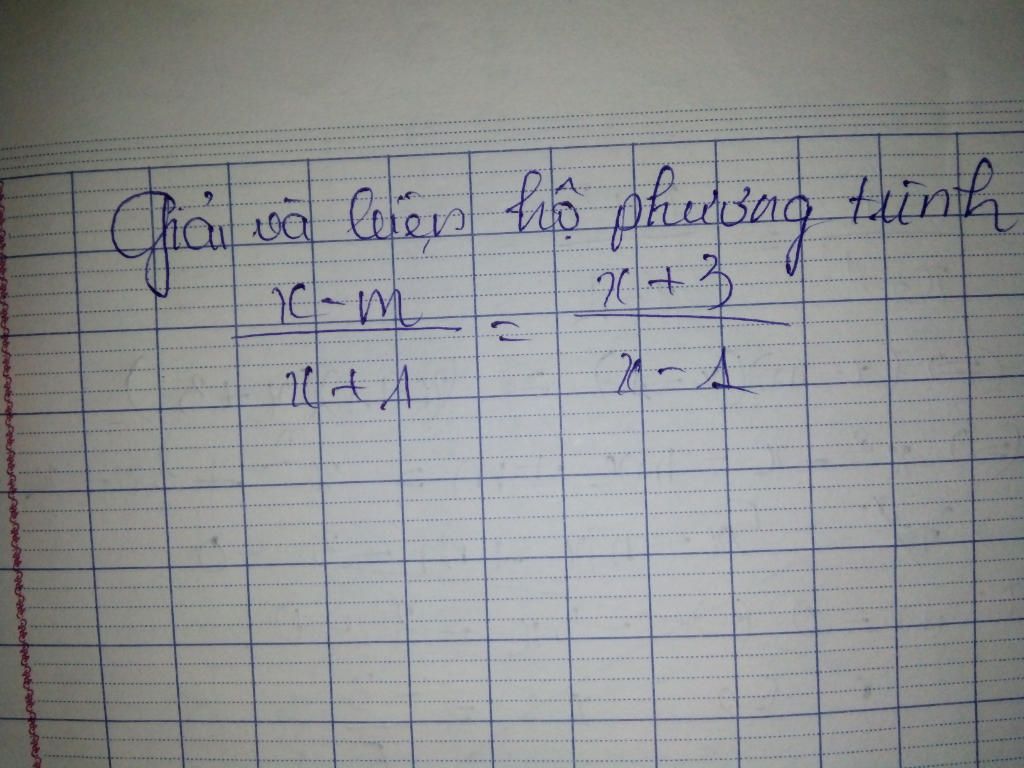 Giải và biện hộ phương trình
x - m / x + 1 = x + 3 / x - 1